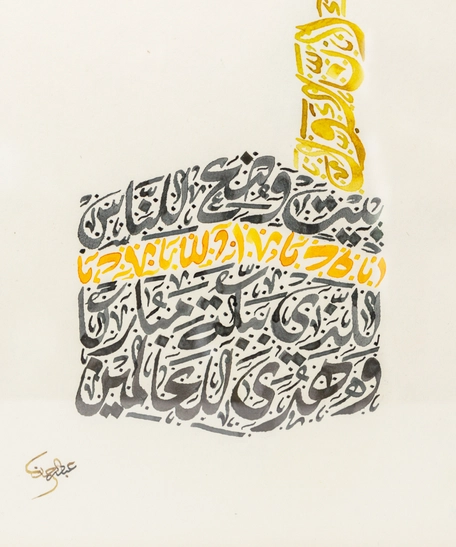 إن أول
بيت وضع للناس
للذي ببكة مباركا
وهدى للعالمين